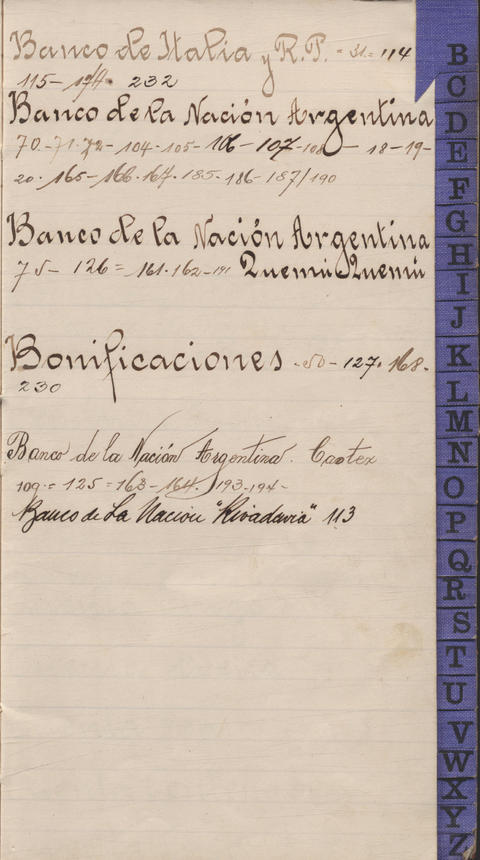 Banco de Italia y R.P. = 31 = 114
115 - 174 · 232
Banco de la Nación Argentina
70 - 71 - 72 - 104 - 105 - 106 - 107 - 108 - 18 - 19 -
20 · 165 - 166 · 167 · 185 - 186 - 187/190
Banco de la Nación Argentina
75 - 126 = 161 · 162 - 191 Quemú Quemú
Bonificaciones - 50 - 127 · 168 -
230
Banco de la Nación Argentina. Castex
109 = 125 = 163 - 164. 193 - 194 -
Banco de La Nacion "Rivadavia" 113
B
C
D
E
F
G
H
I
J
K
L
M
N
O
P
Q
R
S
T
U
V
W
X
Y
Z